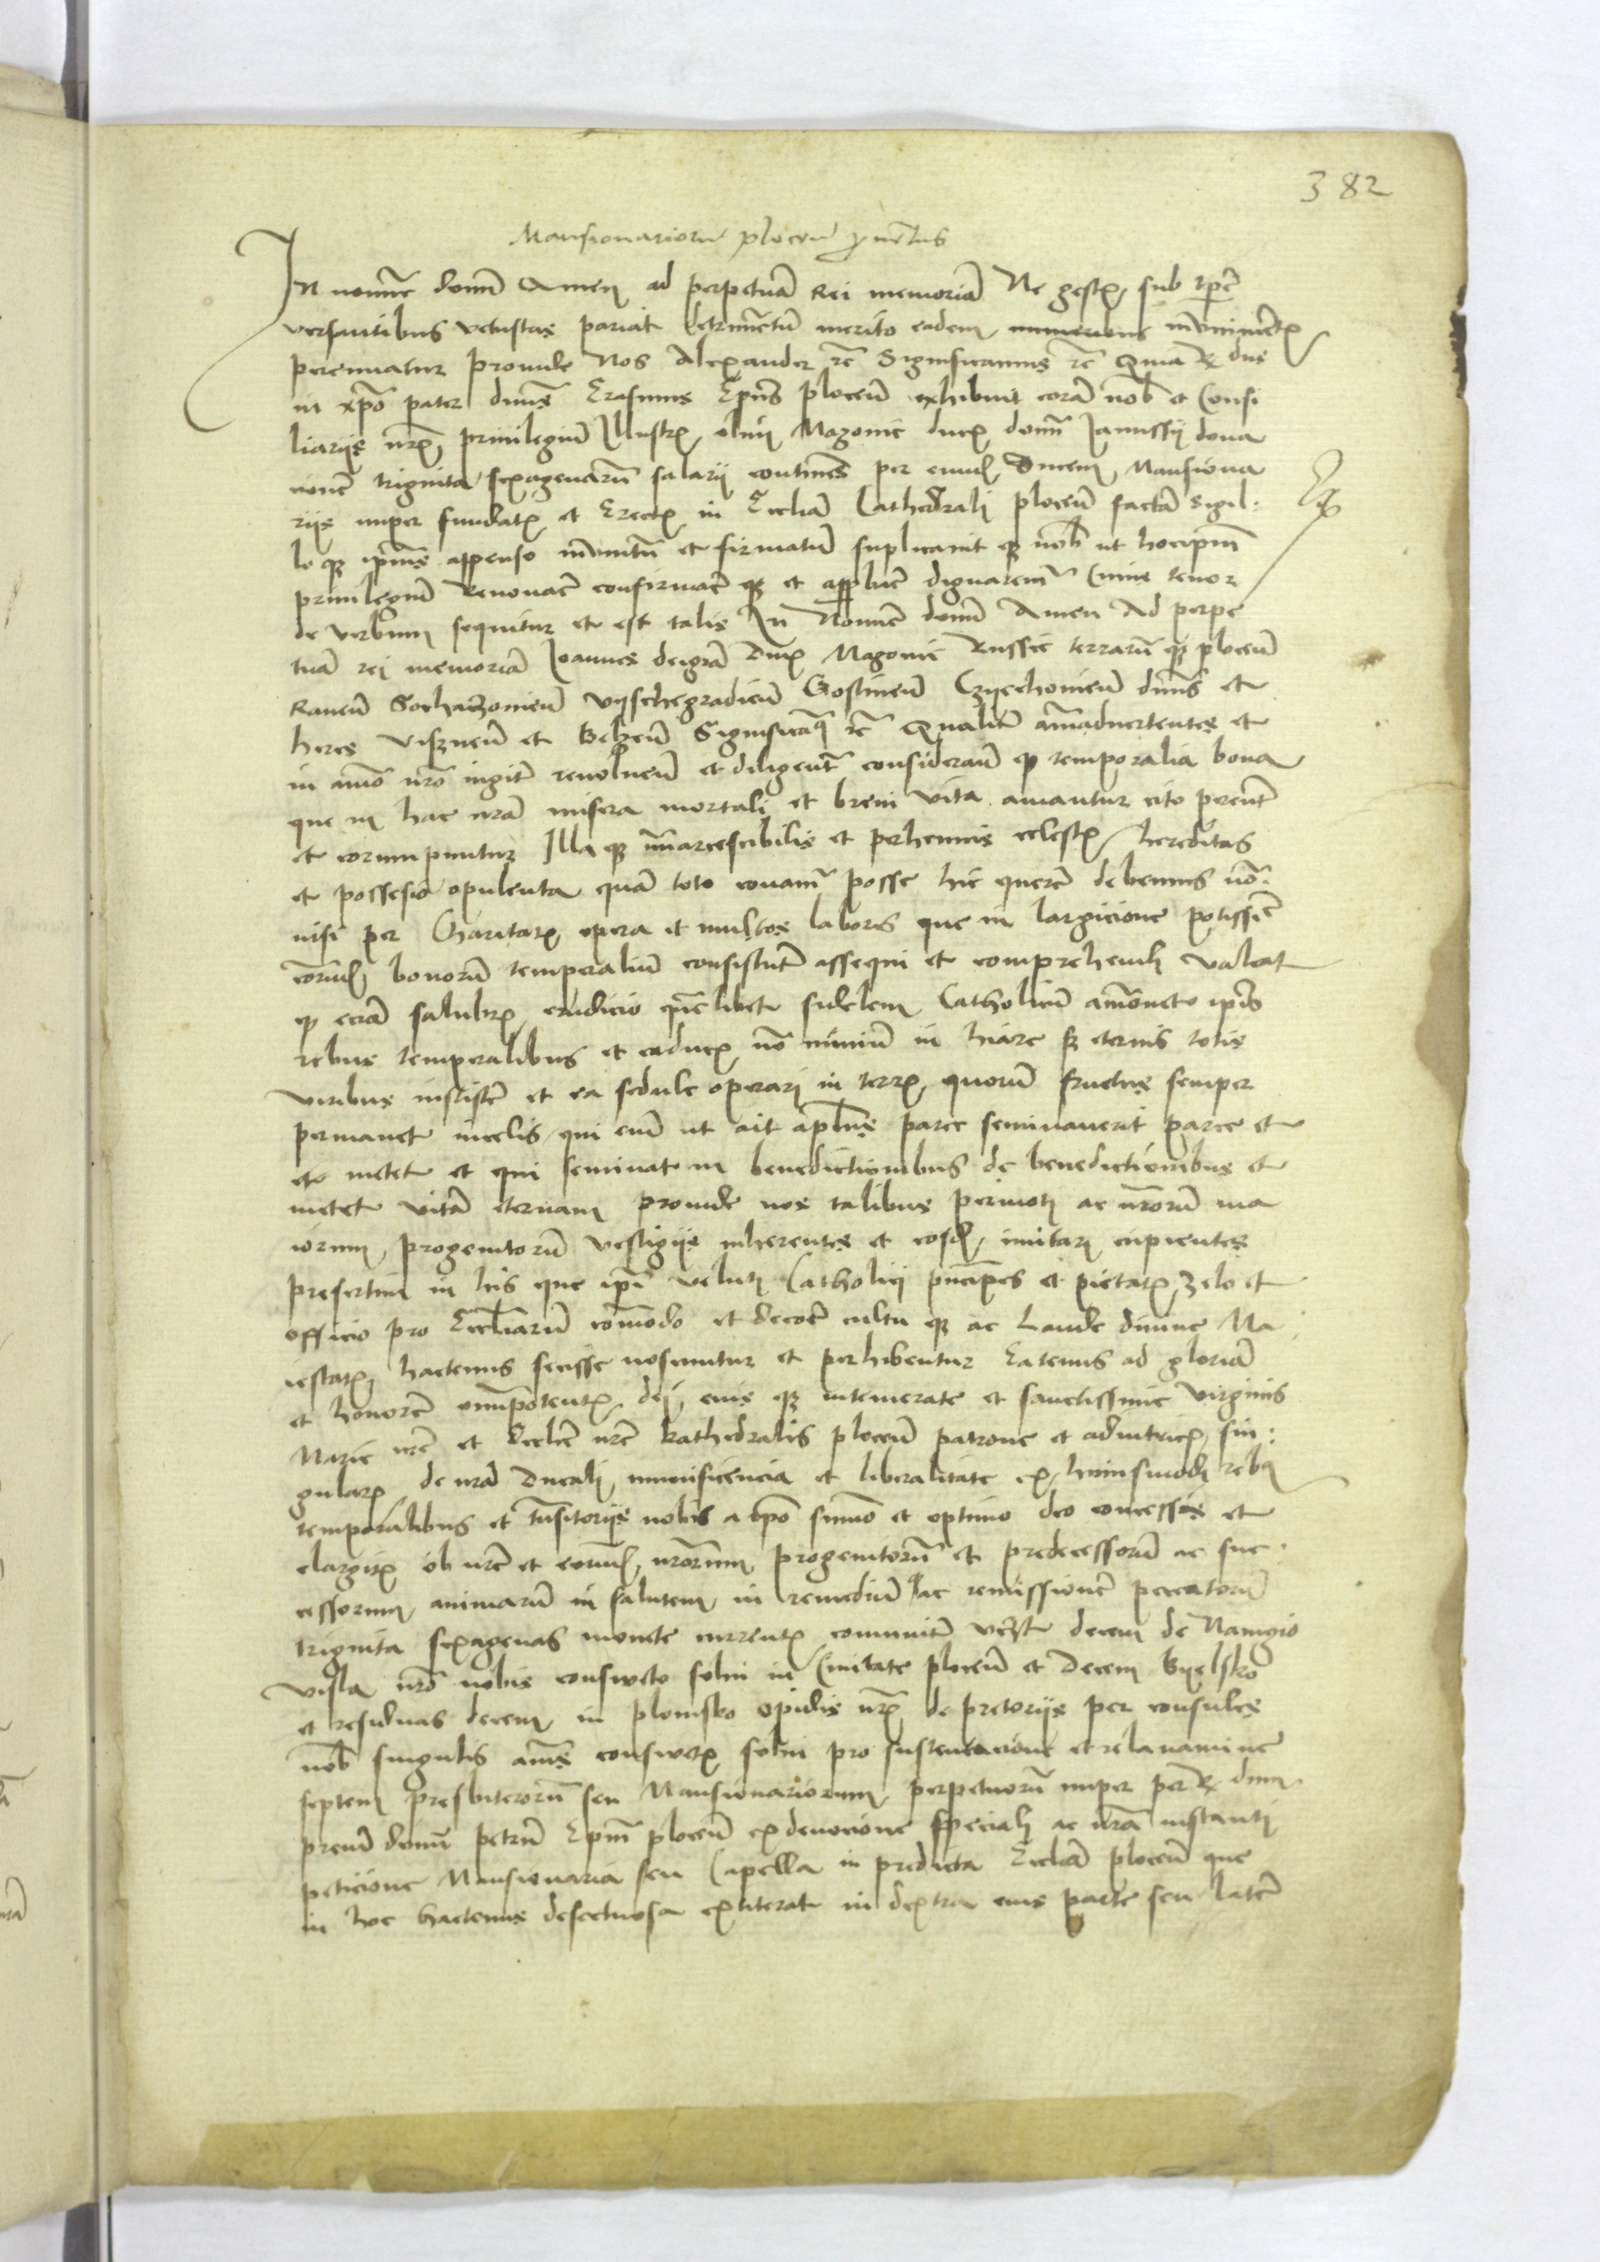 382
Mansionarioru plocen
In nomine domi Amen ad perpetuā Rei memoriā Ne gest sub tpe
versantibus vetustas pariat detrimētū merito eadem munimēt
perennatur proinde Nos Alexander rc Significamus rc Quia R dns
in xpo pater dnus Erasmus Epus plocen exhibuit corā nob et Consi
liarijs nrx privilegiū Illustr olim Mazonie ducx domi Janussij dona
cione triginta sexagenarū salarij contines per eund Ducem Mansiona
rijs nuper fundatx et Erectx in Eccliā Cathedrali plocen factā sigil:
lo qz appenso munitū et firmatū suplicavit qz nob ut hocipm
privilegiū Renovare confirmare qz et dignarem Cuius tenor
de verbum sequitur et est talis In Nomine domi Amen Ad perpe
tuā rei memoriā Joannes deigrā Dux Mazonie Russie terrarū qz plocen
Raven Sochaczonien vyschegradien Gostinen Czyechonien dnus et
heres Viszneñ et Belzeñ Significaq rc Qualit aīadvertentes et
in aīo nro iugit revolven et diligent consideran qp temporalia bona
que in hac nrā misera mortali et breui vita amantur cito pereunt
et corrumpuntur Illa qz īmarcescibilis et perhennis celestx hereditas
et possesio opulenta quā toto conam posse hic querere debemus no
nisi per Charitatx opera et multos labores que in largicione potissie
eorund bonorū temporaliū consistunt assequi et comprehendi valeat
qp eciā salubrx erudicio quelibet fidelem Catholicū amonet ipis
rebus temporalibus et caducx no nimiū in hiare sz eternis totis
viribus insistere et ea sedule operari in terrx quorū fructus semper
permanet incelis qui eni ut ait aplus parce seminaverit parce et
et metet et qui seminat in benedictionibus de benedictionibus et
metet vitā eternam proinde nos talibus permoti ac nrorū ma
iorum progenitorū vestigijs inherentes et eosd imitari cupientes
presertim in his que ipi veluti Catholici pncipes et pietatx zelo et
officio pro Eccliarū comodo et decore cultu qz ac Laude divine Ma
iestatx hactenus fecisse noscuntur et perhibentur Eatenus ad gloriā
et honore omipotentx dei eius qz intemerate et sanctissime virginis
Marie nre et Ecclie nre kathedralis plocen patrone et adiutricx sin:
gularx de nrā Ducali munificencia et liberalitate ex huiusmodi rebq
temporalibus et trāsitorijs nobis a ipo sumo et optimo deo concessis et
elargitx ob nre et eorund nrorum progenitorū et predecessorū ac suc
cessorum animarū in salutem in remediū qz ac remissione peccatorū
triginta sexagenas monete currentx comunit decem de Navigio
visla nro nobis consweto solui in Civitate plocen et decem Byelsko
et residuas decem in plonsko opidis nrx de pretorijs per consules
nob singulis annis conswetx solui pro sustentacione et relavamine
septem presbiterorū seu Mansionariorum perpetuorū nuper per R dnm
preuū domi petrū Epm plocen ex devocione speciali ac nrā instanti
peticione Mansionaria seu Capella in predicta Eccliā plocen que
in hoc hactenus defectuosa extiterat in dextra eius parte seu latere